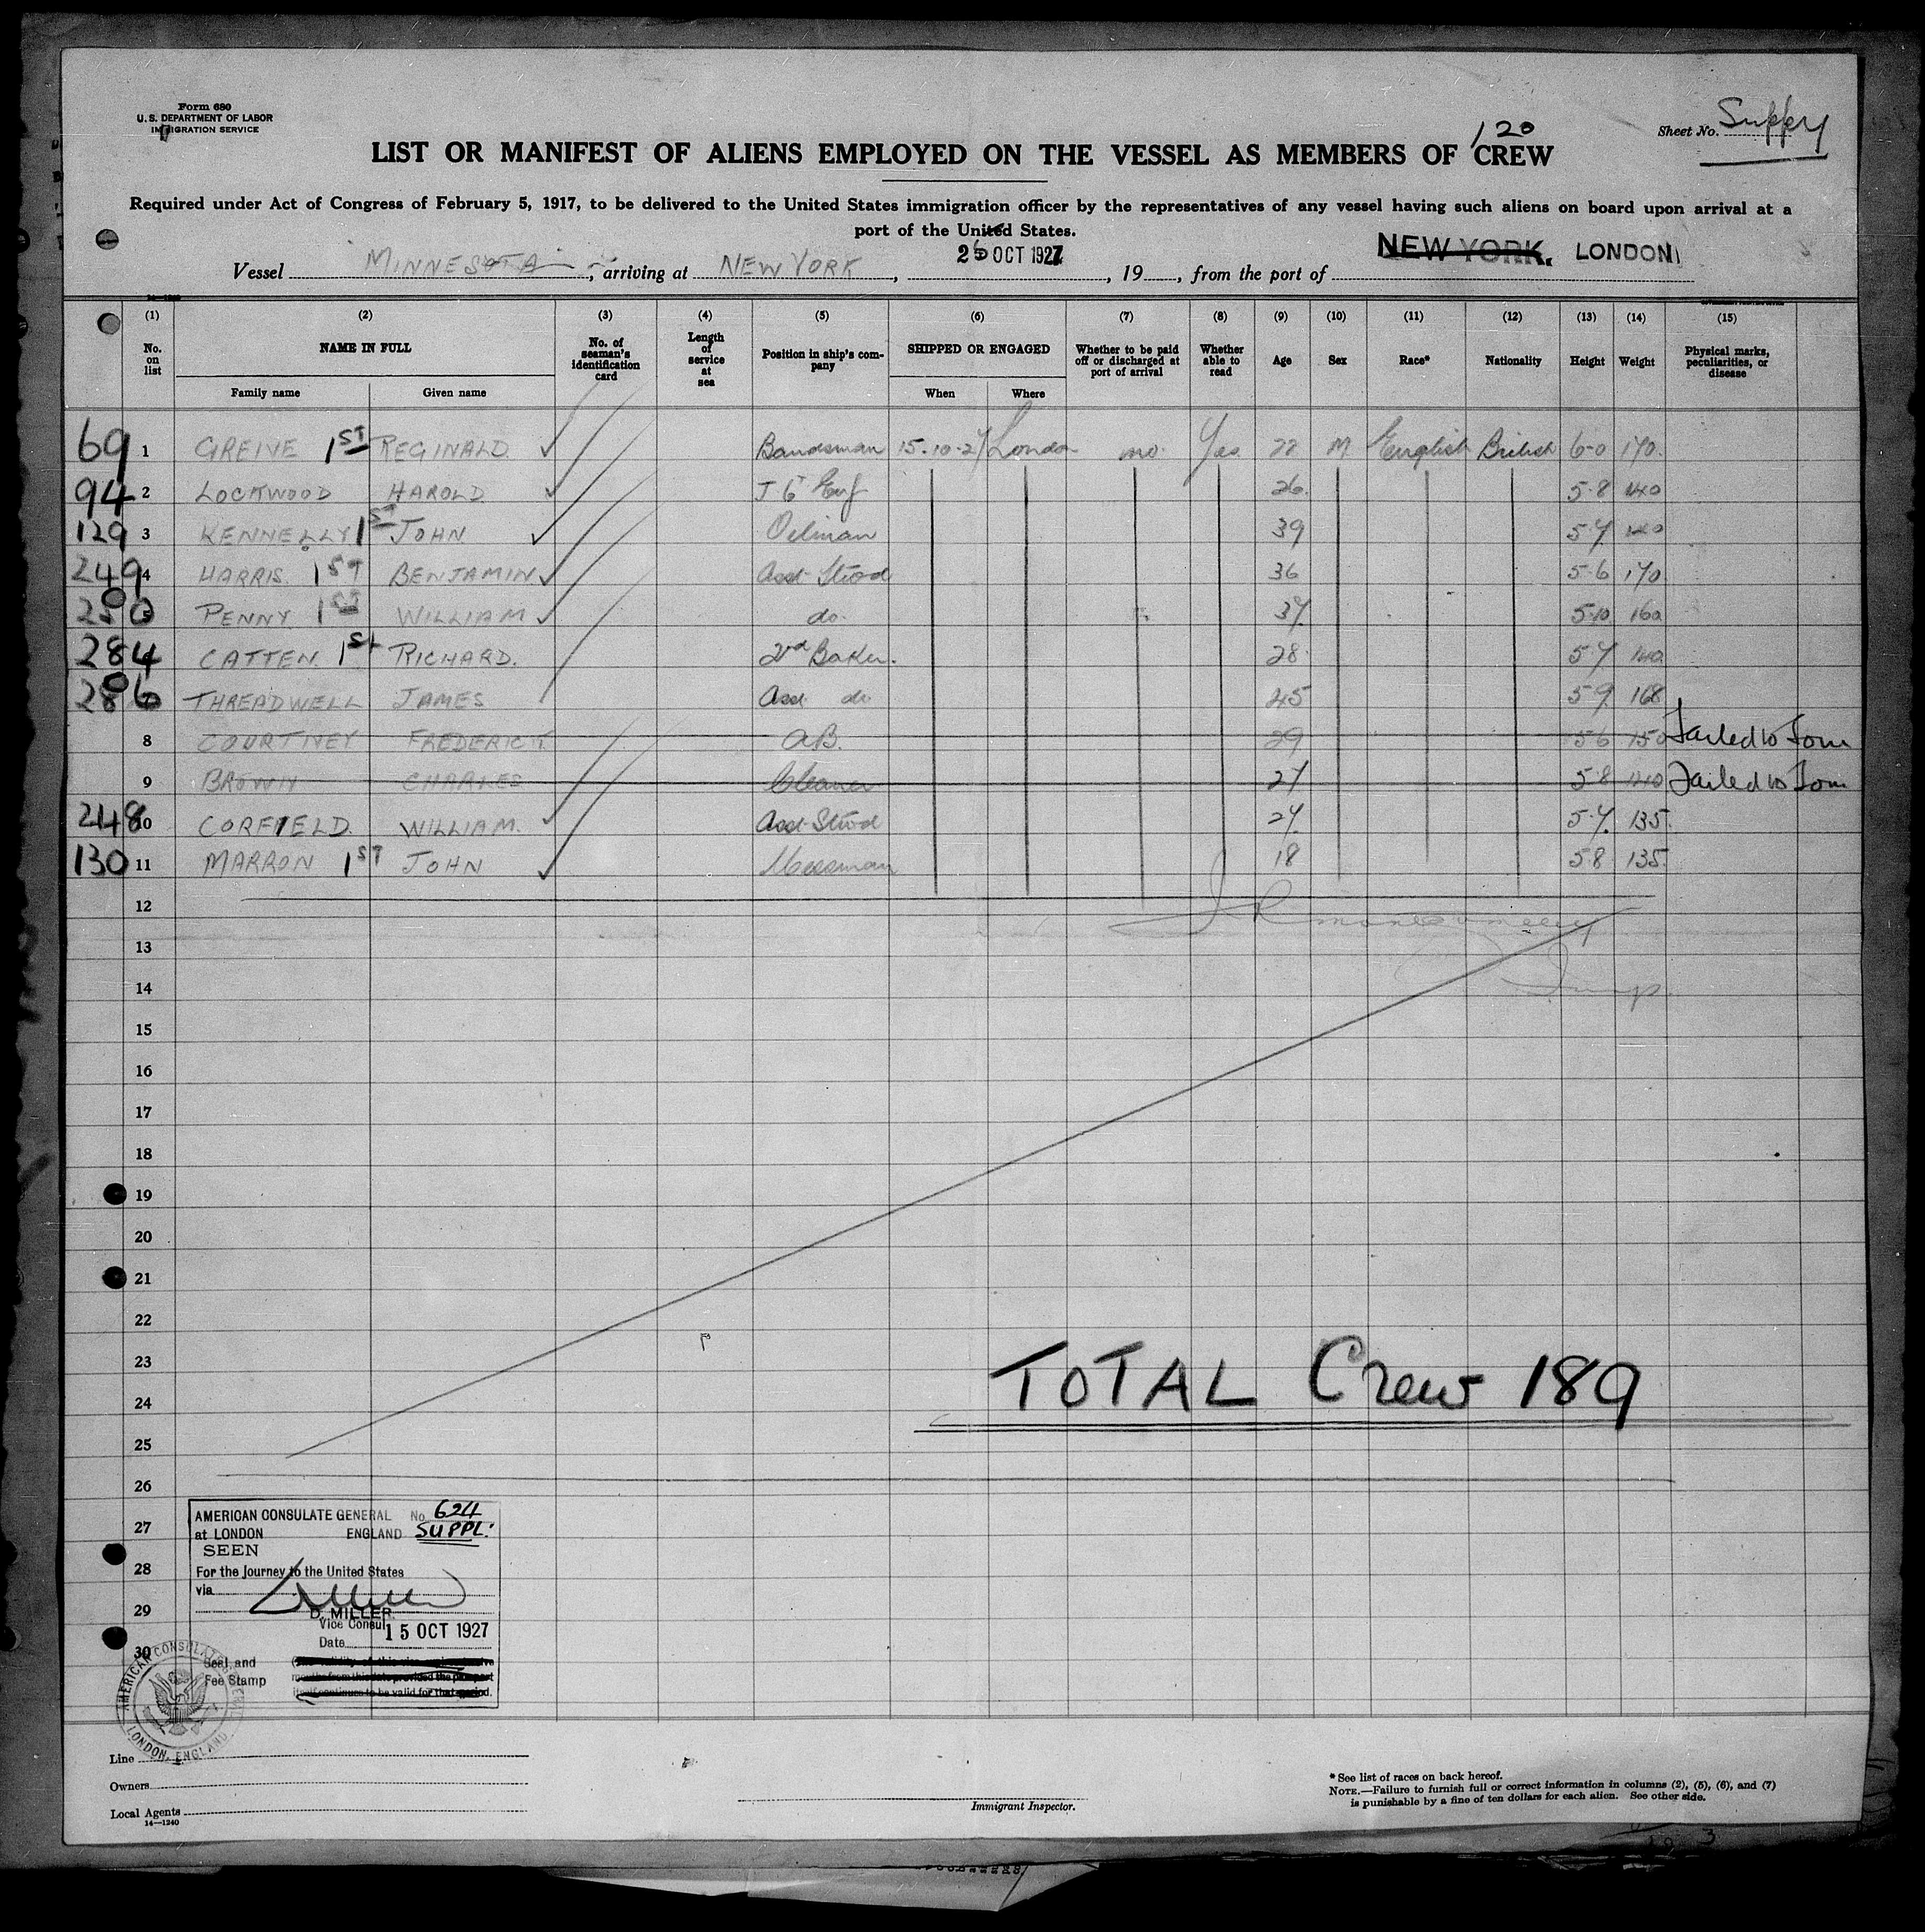 Form 680
U. S. DEPARTMENT OF LABOR
IMMIGRATION SERVICE
Sheet No. Suppy
120
LIST OR MANIFEST OF ALIENS EMPLOYED ON THE VESSEL AS MEMBERS OF CREW
Required under Act of Congress of February 5, 1917, to be delivered to the United States immigration officer by the representatives of any vessel having such aliens on board upon arrival at a
port of the United States.
Vessel MINNESOTA, arriving at NEW YORK, 26 OCT 1927, 19, from the port of NEW YORK. LONDON
(1) (2) (3) (4) (5) (6) (7) (8) (9) (10) (11) (12) (13) (14) (15)
No. on list NAME IN FULL No. of seaman's identification card Length of service at sea Position in ship's company SHIPPED OR ENGAGED Whether to be paid off or discharged at port of arrival Whether able to read Age Sex Race* Nationality Height Weight Physical marks, peculiarities, or disease
Family name Given name When Where
69 1 GREIVE 1ST REGINALD. Bandsman 15-10-27 London no. Yes 22 M English British 6-0 170.
94 2 LOCKWOOD HAROLD 26. 5-8 140
129 3 KENNELLY 1ST JOHN Oilman 39 5-7 140
249 4 HARRIS. 1ST BENJAMIN Asst Stwd 36 5-6 170
250 PENNY 1ST WILLIAM do. 37. 5-10 160
284 CATTEN. 1st RICHARD. 2nd Baker. 28. 5-7 140
286 THREADWELL JAMES Asst do 45 5-9 168
8 COURTNEY FREDERICK A.B. 29 5-6 150 Failed to Join
9 BROWN CHARLES Cleaner 27 5-8 140 Failed to Join
248 10 CORFIELD. WILLIAM. Asst Stwd 27. 5-7. 135.
130 11 MARRON 1ST JOHN Messman 18 5-8 135.
12
13
14
15
16
17
18
19
20
21
22
23
24
25
26
27
28
29
30
TOTAL Crew 189
AMERICAN CONSULATE GENERAL No. 624
at LONDON ENGLAND SUPPL.
SEEN
For the Journey to the United States
via
D. MILLER
Vice Consul
Date 15 OCT 1927
Seal and
Fee Stamp
months from this date provided the passport
itself continues to be valid for that period.
AMERICAN CONSULATE GENERAL
LONDON, ENGLAND
Line
Owners
Local Agents
14—1240
Immigrant Inspector.
* See list of races on back hereof.
NOTE.—Failure to furnish full or correct information in columns (2), (5), (6), and (7)
is punishable by a fine of ten dollars for each alien. See other side.